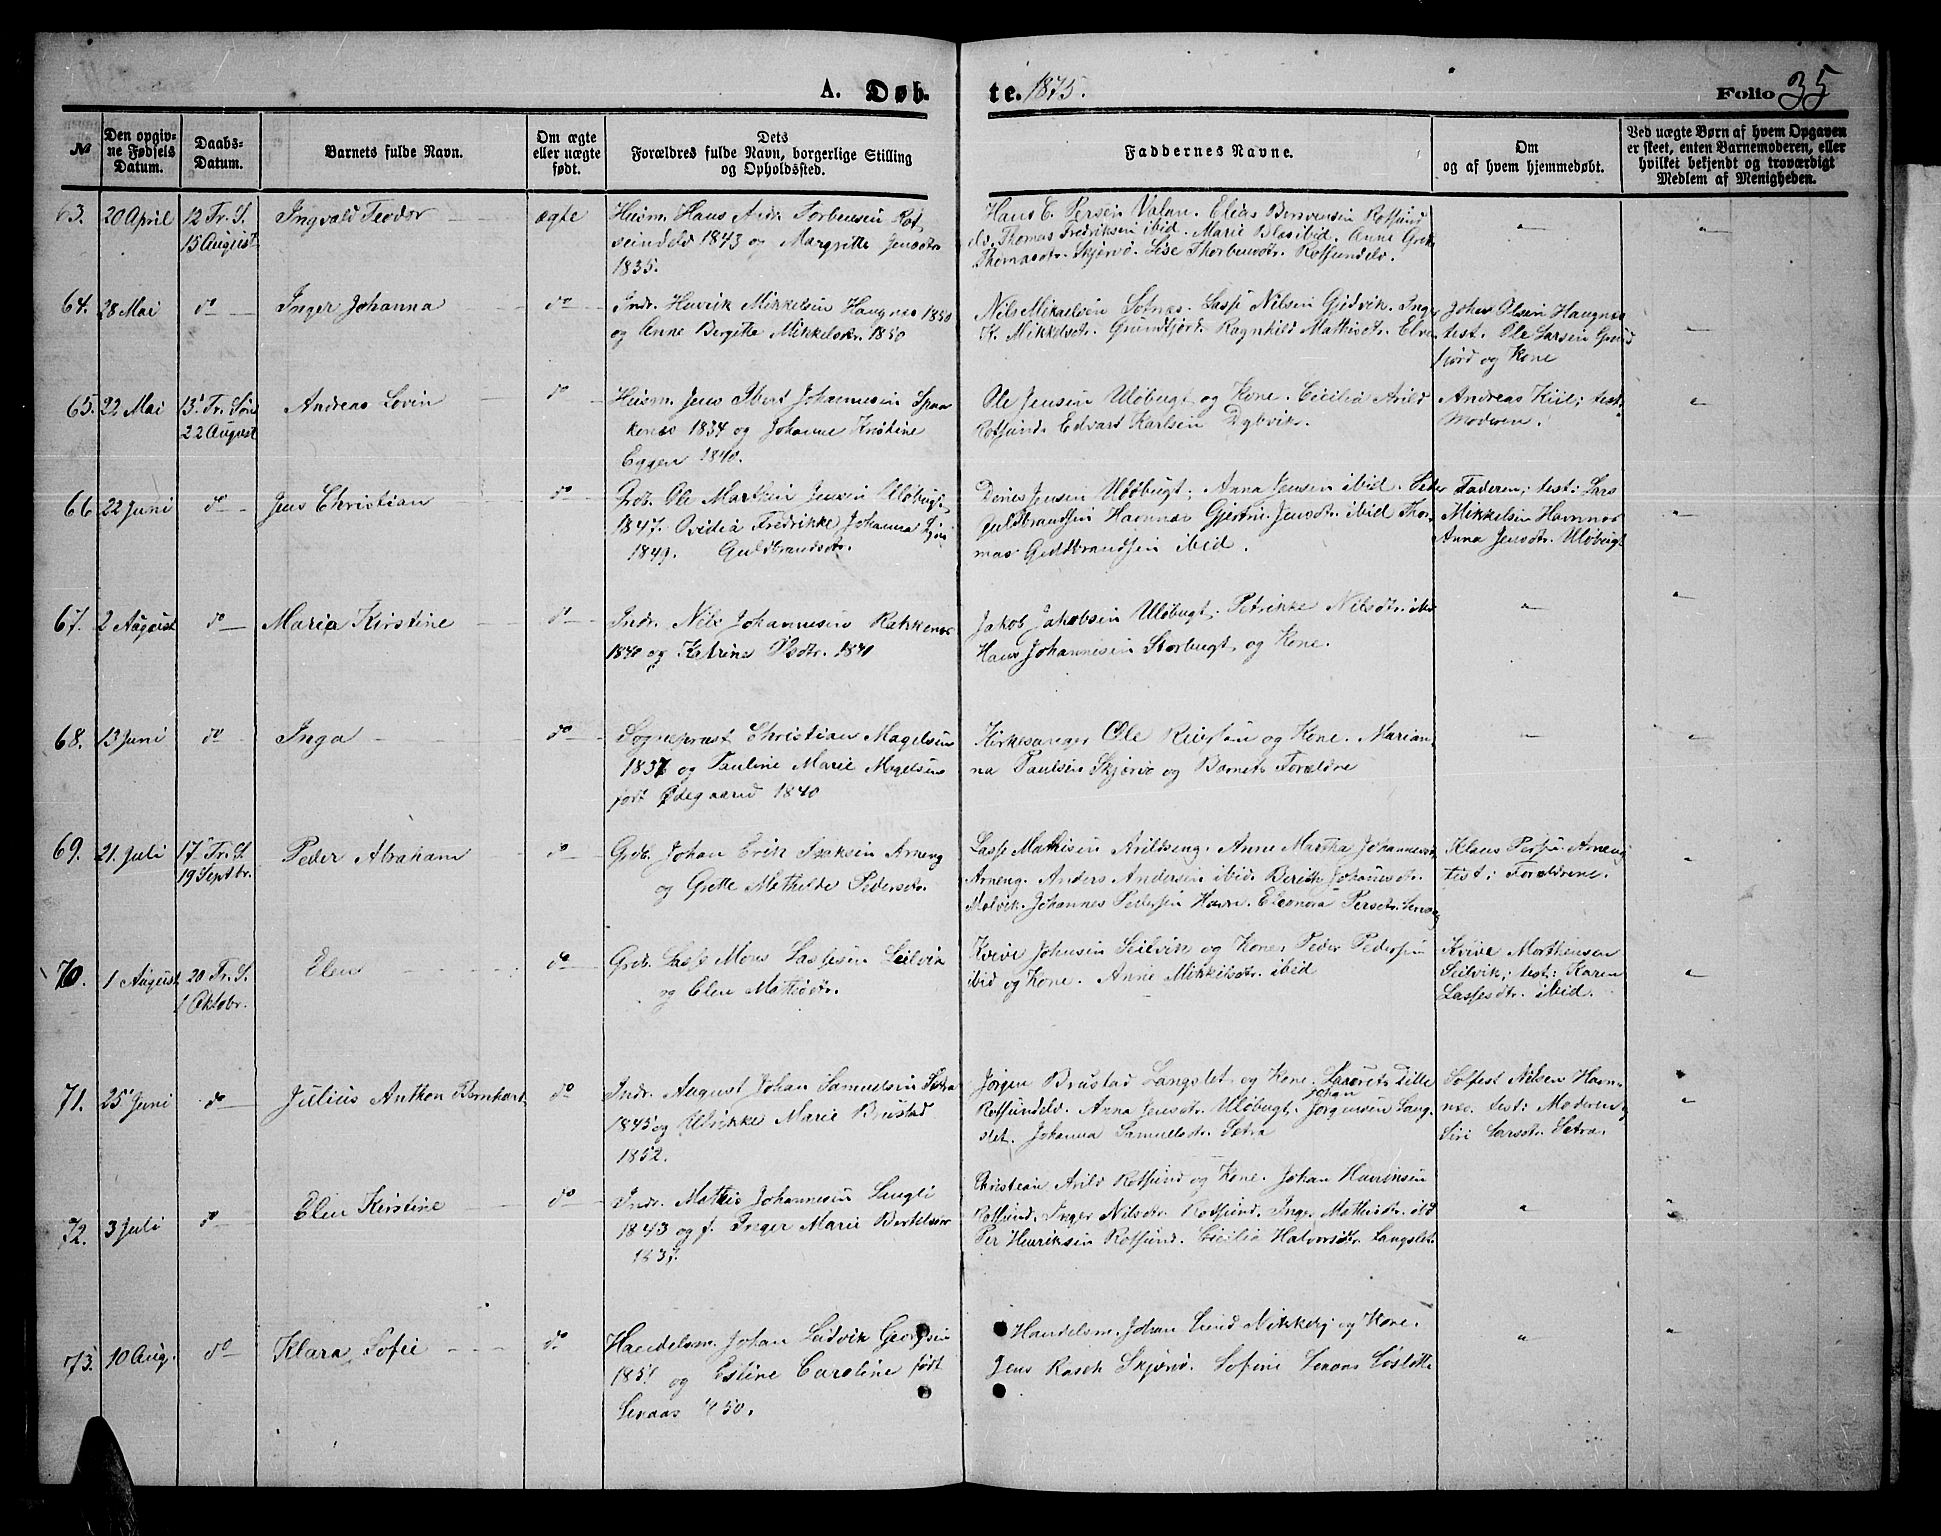 A. Døb. te. 1875. Folio 35
№
Den opgivne Fødsels Datum.
Daabs-Datum.
Barnets fulde Navn.
Om ægte eller uægte født.
Dets Forældres fulde Navn, borgerlige Stilling og Opholdssted.
Faddernes Navne.
Om og af hvem hjemmedøbt.
Ved uægte Børn af hvem Opgaven er skeet, enten Barnemoderen, eller hvilket bekjendt og troværdigt Medlem af Menigheden.
63. 20 April
12 Tr. S.
15 August
Ingvald Teodor
ægte
Husm. Hans Andr. Torbensen Rot
sundelv 1843 og Margrethe Jensdtr
1835.
Hans C. Persen Valan. Elias Bersvensen Rotsund
elv. Thomas Fredriksen ibid. Marie Blas ibid. Anne Grete
Thomasdtr. Skjervø. Lise Thorbensdtr. Rotsundelv.
64. 28 Mai
do
Inger Johanna
do
Indr. Henrik Mikkelsen Haugnæs 1850
og Anne Bergitte Mikkelsdtr. 1850
Nils Mikaelsen Sotnæs. Lasse Nilsen Gjedvik. Inger
K. Mikkelsdtr. Grundfjord. Ragnhild Mathisdtr. Elve
Johan Olsen Haugnæs
test. Ole Larsen Grund
fjord og Kone
65. 22 Mai
13 Tr. Søn
22 August
Andreas Lovin
do
Husm. Jens Ibert Johannesen Spaa
kenæs 1834 og Johanne Kristine
Eggen 1840.
Ole Jensen Uløbugt og Kone. Cicilia Arild
Rotsund. Edvart Karlsen Dybvik.
Andreas Kiil; test:
Moderen.
66 22 Juni
do
Jens Christian
do
Grdb. Ole Martin Jensen Uløbugt
1847. Ovidia Fredrikke Johanna
1849. Guldbrandsdtr.
Dines Jensen Uløbugt; Anna Jensen ibid. Peder
Guldbrandsen Havnnæs Gjertru Jensdtr. ibid Tho
mas Guldbrandsen ibid.
Faderen; test: Lars
Mikkelsen Havnnæs
Anna Jensdtr. Uløbugt
67. 2 August
do
Maria Kirstine
do
Indr. Nils Johannesen Rakkenæs
1840 og Katrine Olsdtr. 1840
Jakob Jakobsen Uløbugt; Petrikke Nilsdtr. ibid
Hans Johannesen Storbugt og Kone.
68. 13 Juni
do
Inga
do
Sogneprest Christian Magelsen
1837 og Pauline Marie Magelsen
født Ødegaard 1840
Kirkesanger Ole Reiersen og Kone. Marian
na Paulsen Skjervø og Barnets Forældre
69. 21. Juli
17 Tr. S.
19 Septbr.
Peder Abraham
do
Grdb. Johan Erik Isaksen Arneng
og Grette Mathilde Pedersdtr.
Lasse Mathisen Arildseng. Anne Martha Johannesdtr
Arneng. Anders Andersen ibid. Berith Johannesdtr.
Molvik. Johannes Pedersen Havn. Eleonora Persdtr.
Klaus Persen Arneng
test: Forældrene.
70. 1 August
20 Tr. S.
1 Oktobr.
Elen
do
Grdb. Lasse Mons Lassesen Seilvik
og Elen Mathisdtr.
Kvive Johnsen Seilvik og Kone. Peder Pedersen
ibid og Kone. Anne Mikkelsdtr. ibid
Kvive Morthensen
Seilvik; test: Karen
Lassesdtr. ibid.
71. 25 Juni
do
Julius Anthon Bernhart
do
Indr. August Johan Samuelsen Sætra
1845 og Ulrikke Marie Brustad
1852.
Jørgen Brustad Langslet og Kone. Lille
Rotsundelv. Anna Jensdtr. Uløbugt. Johan Jørgensen Lang
slet. Johanna Samuelsdtr. Sætra
Solfest Nilsen Havn
næs. test: Moderen og
Siri Larsdtr. Sætra.
72. 3 Juli
do
Elen Kirstine
do
Indr. Mathis Johannesen Langli
1843 og f. Inger Marie Bertelsdtr
1837.
Christian Arild Rotsund og Kone. Johan Henriksen
Rotsund. Inger Nilsdtr. Rotsund. Inger Mathisdtr. ibid
Per Henriksen Rotsund. Cicilia Halvorsdtr. Langslet.
73. 10 Aug.
do
Klara Sofie
do.
Handelsm. Johan Ludvik Georgsen
1851 og Estine Caroline født
Lenaas 1850.
Handelsm. Johan Lund Nikkeby og Kone.
Jens Rasch Skjervø. Sofine Lenaas